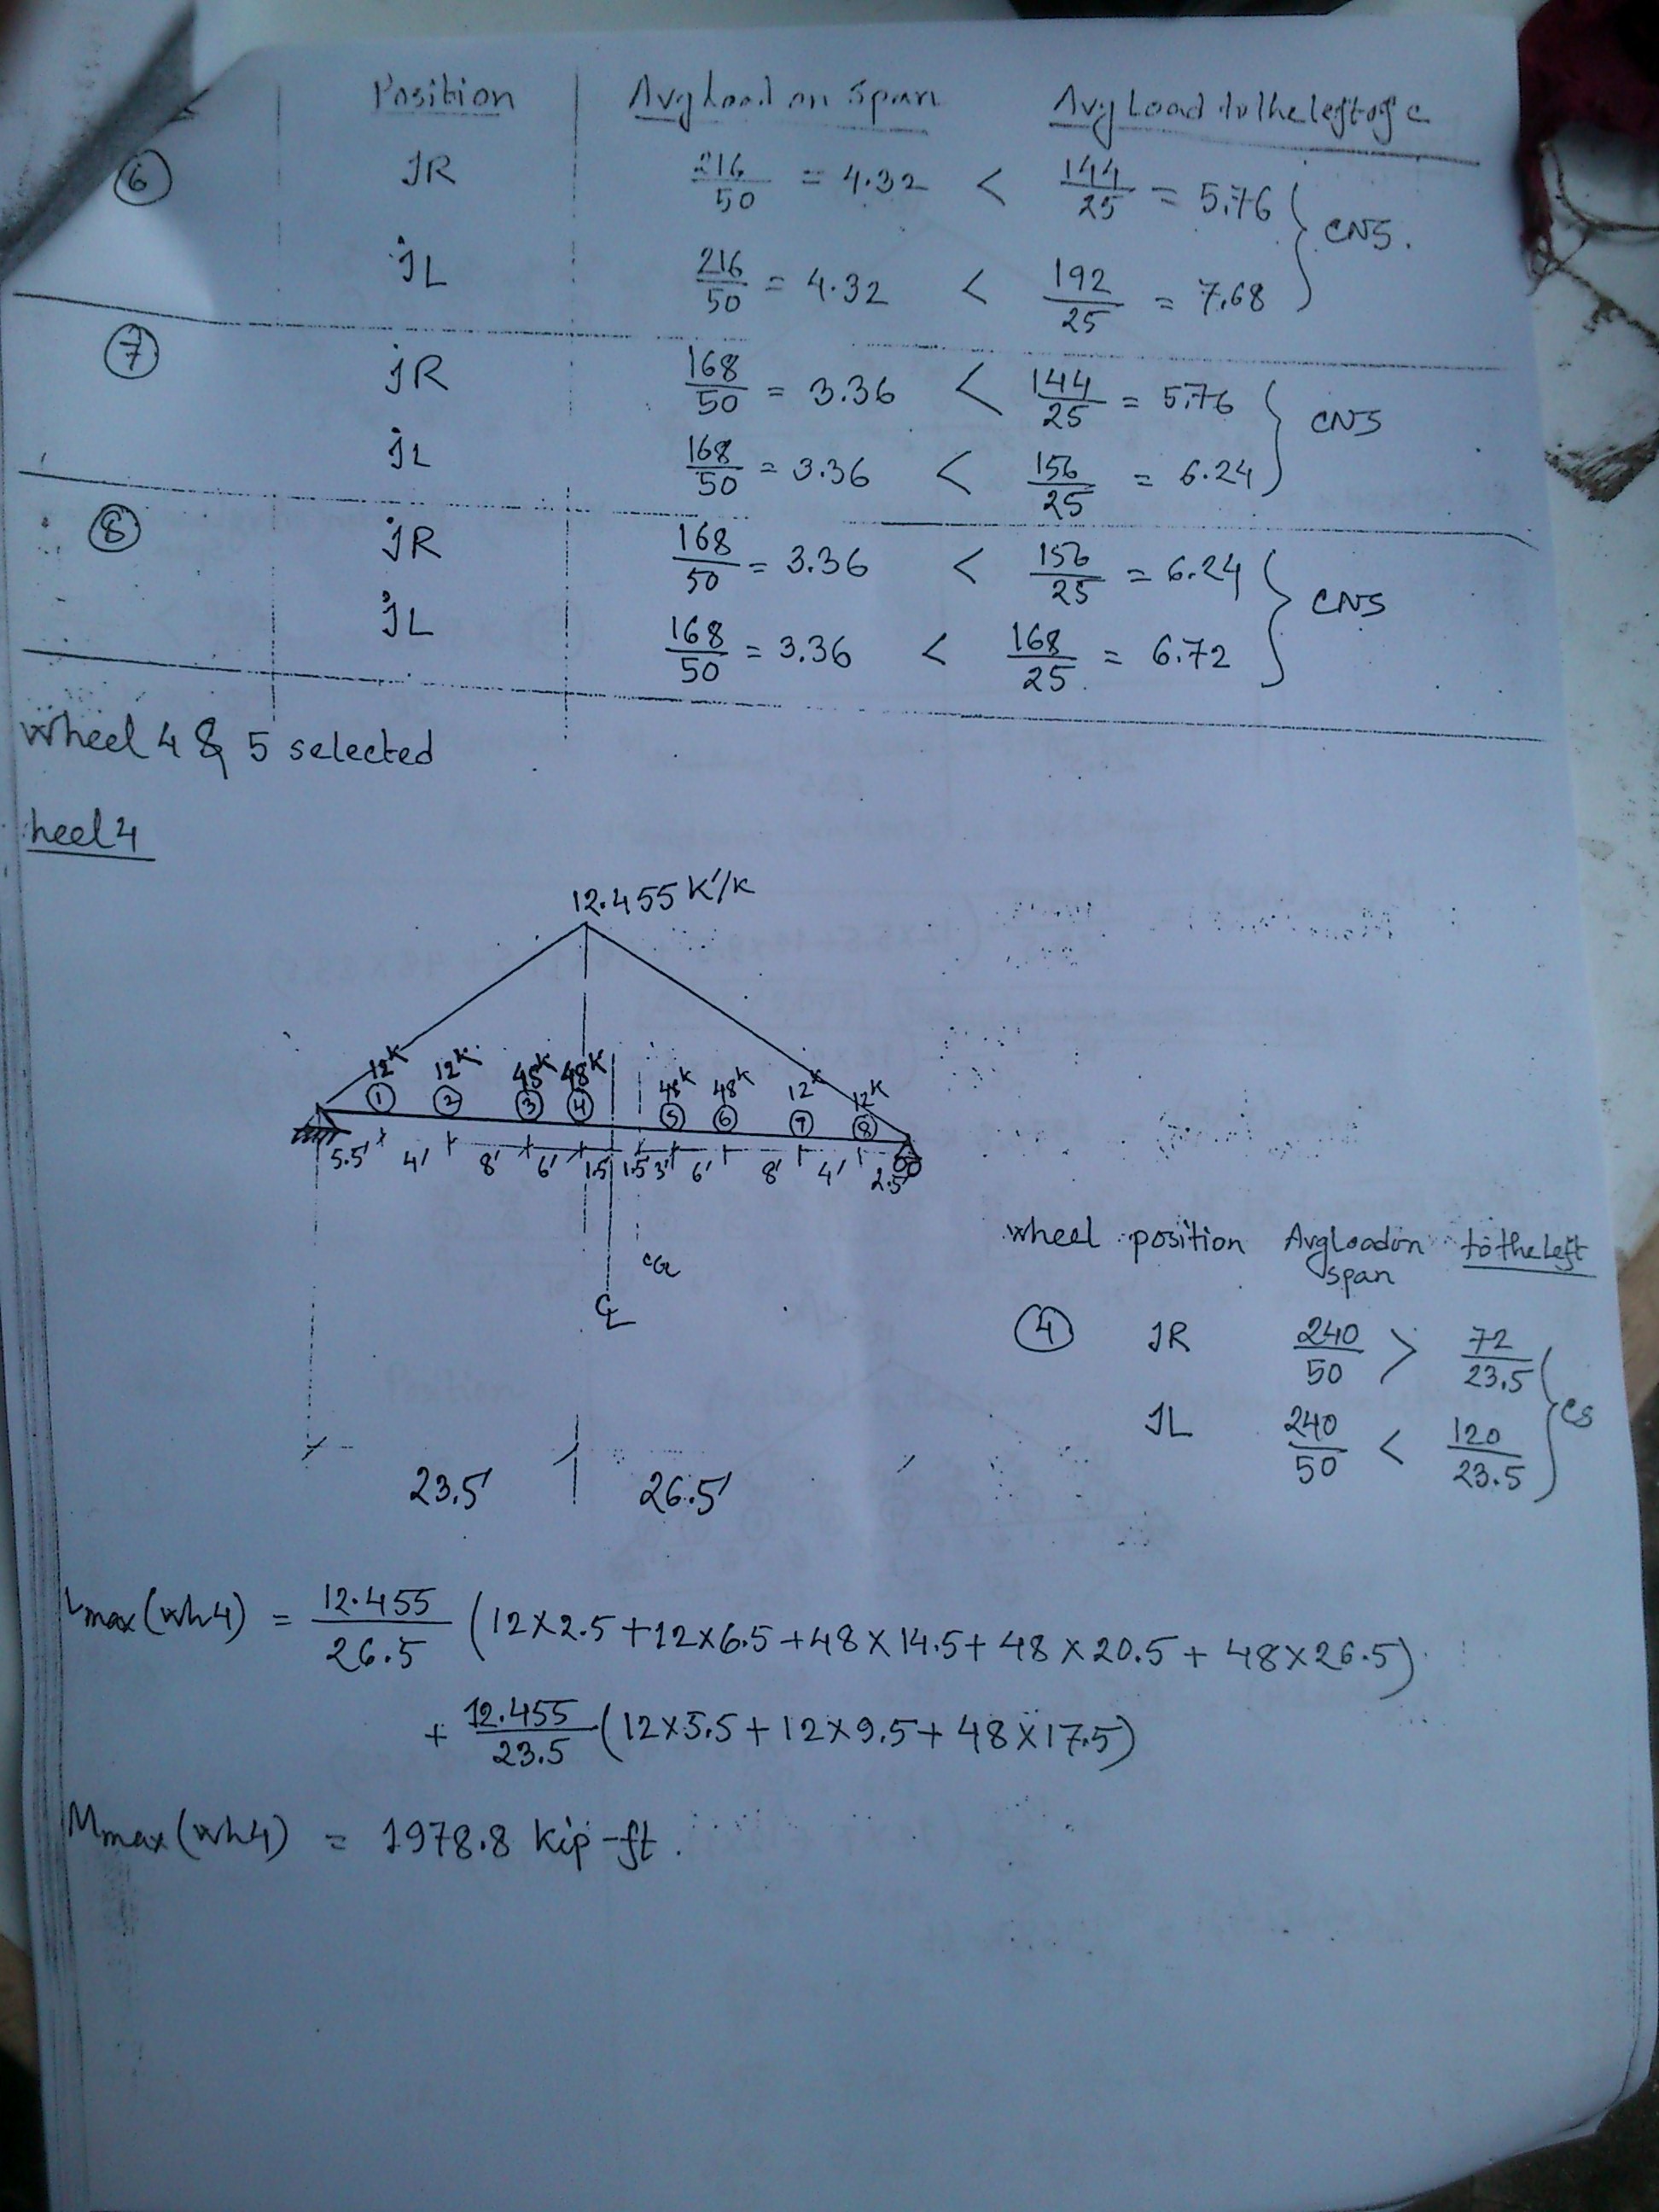 Position Avg Load on Span Avg Load to the left of c
6 JR 216/50 = 4.32 < 144/25 = 5.76
CNS.
JL 216/50 = 4.32 < 192/25 = 7.68
7 JR 168/50 = 3.36 < 144/25 = 5.76
CNS
JL 168/50 = 3.36 < 156/25 = 6.24
8 JR 168/50 = 3.36 < 156/25 = 6.24
CNS
JL 168/50 = 3.36 < 168/25 = 6.72
Wheel 4 & 5 selected
heel 4
12.455 K'/K
12K 12K 48K 48K 48K 48K 12K 12K
1 2 3 4 5 6 7 8
5.5' 4' 8' 6' 1.5 1.5 3' 6' 8' 4' 2.5'
CG
CL
wheel position Avg Load on span to the Left
4 JR 240/50 > 72/23.5
CS
JL 240/50 < 120/23.5
23.5' 26.5'
max (wh4) = 12.455/26.5 (12×2.5+12×6.5+48×14.5+48×20.5+48×26.5)
+ 12.455/23.5 (12×5.5+12×9.5+48×17.5)
Mmax (wh4) = 1978.8 Kip-ft.